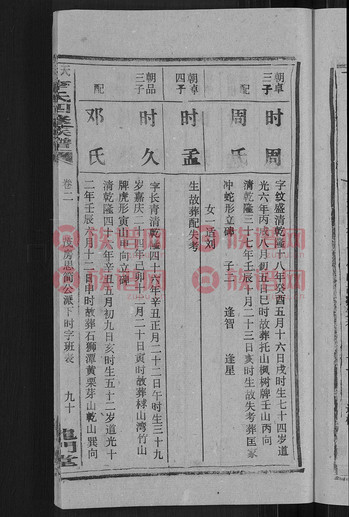 朝卓三子
时周
字纹盛清乾隆十八年癸酉五月十六日戌时生七十四岁道
光六年丙戌八月初五日巳时故葬托山枫树牌壬山丙向
配
周氏
清乾隆三十七年壬辰八月二十三日亥时生故失考葬匡家
冲蛇形立碑 子二 逢智 逢星
女一适刘
朝卓四子
时孟
生故葬配失考
朝品三子
时久
字长青清乾隆四十六年辛丑正月二十二日午时生三十九
岁嘉庆二十四年己卯十二月二十日寅时故葬梽山湾竹山
牌虎形寅山申向立碑
配
邓氏
清乾隆四十六年辛丑五月初九日亥时生五十二岁道光十
二年壬辰六月十二日申时故葬石狮潭黄栗芽山乾山巽向
氏四修族谱
卷二
公派下时字班表
九十